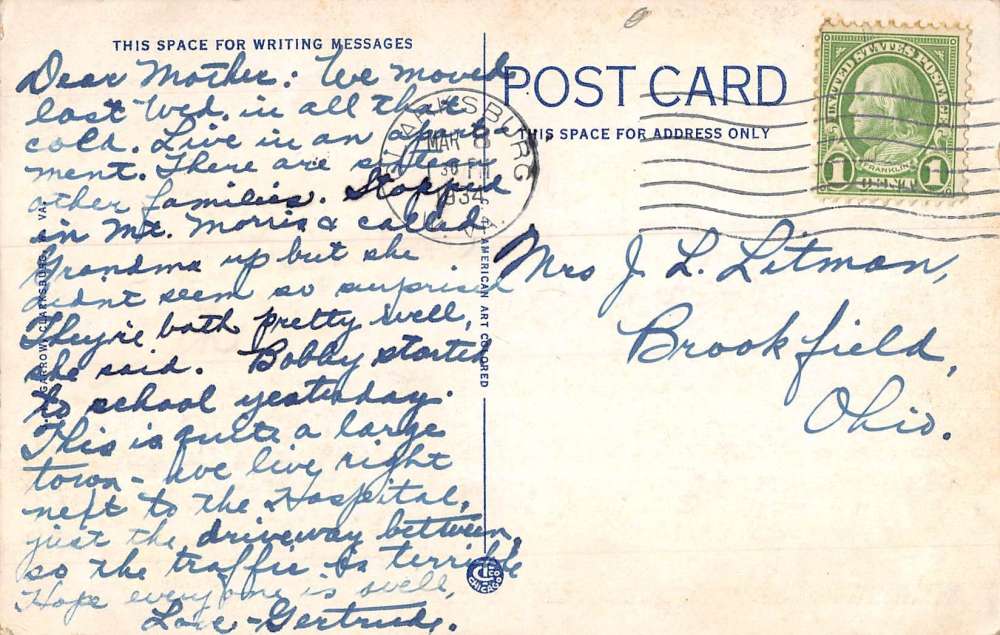 THIS SPACE FOR WRITING MESSAGES
Dear Mother: We moved
last Wed. in all that
cold. Live in an apart-
ment. There are sixteen
other families. Stopped
in Mt. Morris & called
Grandma up but she
didnt seem so surprised
They're both pretty well,
she said. Bobby started
to school yesterday.
This is quite a large
town - we live right
next to the Hospital,
just the driveway between,
so the traffic is terrible
Hope everyone is well,
Love - Gertrude.
CLARKSBURG, W. VA.
AMERICAN ART COLORED
C.T. CO. CHICAGO
CLARKSBURG
MAR 8
30 PM
1934
W. VA.
POST CARD
THIS SPACE FOR ADDRESS ONLY
UNITED STATES POSTAGE
FRANKLIN
1 1
Mrs J. L. Litman,
Brookfield,
Ohio.